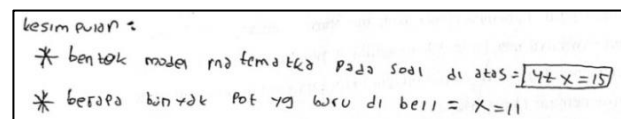 kesimpulan :
* bentok model matematka pada soal di atas = 4+x=15
* berapa banyak pot yg buru di beli = x=11